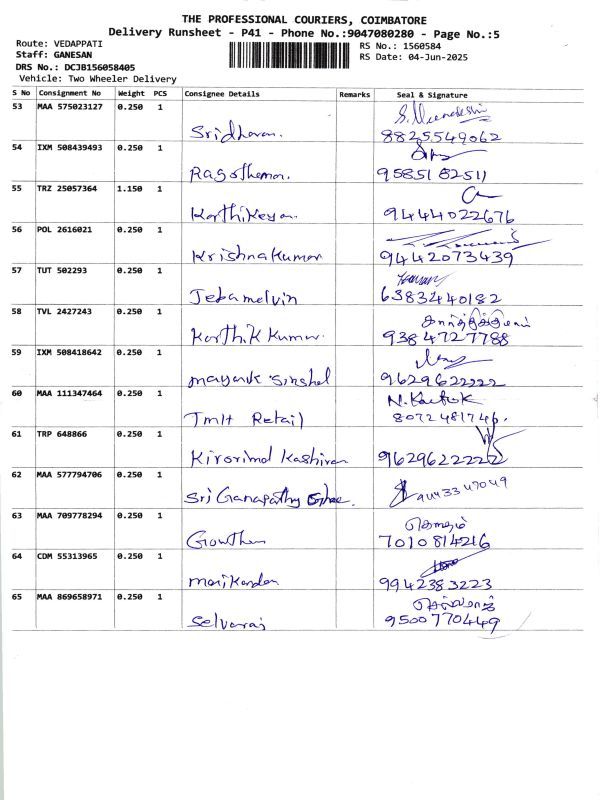 THE PROFESSIONAL COURIERS, COIMBATORE
Delivery Runsheet - P41 - Phone No.:9047080280 - Page No.:5
Route: VEDAPPATI
Staff: GANESAN
DRS No.: DCJB156058405
Vehicle: Two Wheeler Delivery
RS No.: 1560584
RS Date: 04-Jun-2025
S No Consignment No Weight PCS Consignee Details Remarks Seal & Signature
53 MAA 575023127 0.250 1
Sridharan. 8825549062
54 IXM 508439493 0.250 1
Ragothaman. 9585182511
55 TRZ 25057364 1.150 1
Karthikeyan. 9444022676
56 POL 2616021 0.250 1
Krishnakumar 9442073439
57 TUT 502293 0.250 1
Jebamelvin 6383440182
58 TVL 2427243 0.250 1
Karthik Kumar. 9384727788
59 IXM 508418642 0.250 1
mayank 9629622222
60 MAA 111347464 0.250 1 N. Karthik
Tmlt Retail 8072481746.
61 TRP 648866 0.250 1
Kirorimal Kashiram 9629622222
62 MAA 577794706 0.250 1
Sri Ganapathy
63 MAA 709778294 0.250 1 கௌதம்
Gowtham 7010814216
64 CDM 55313965 0.250 1
manikandan 9942383223
65 MAA 869658971 0.250 1 செல்வராஜ்
Selvaraj 9500770449